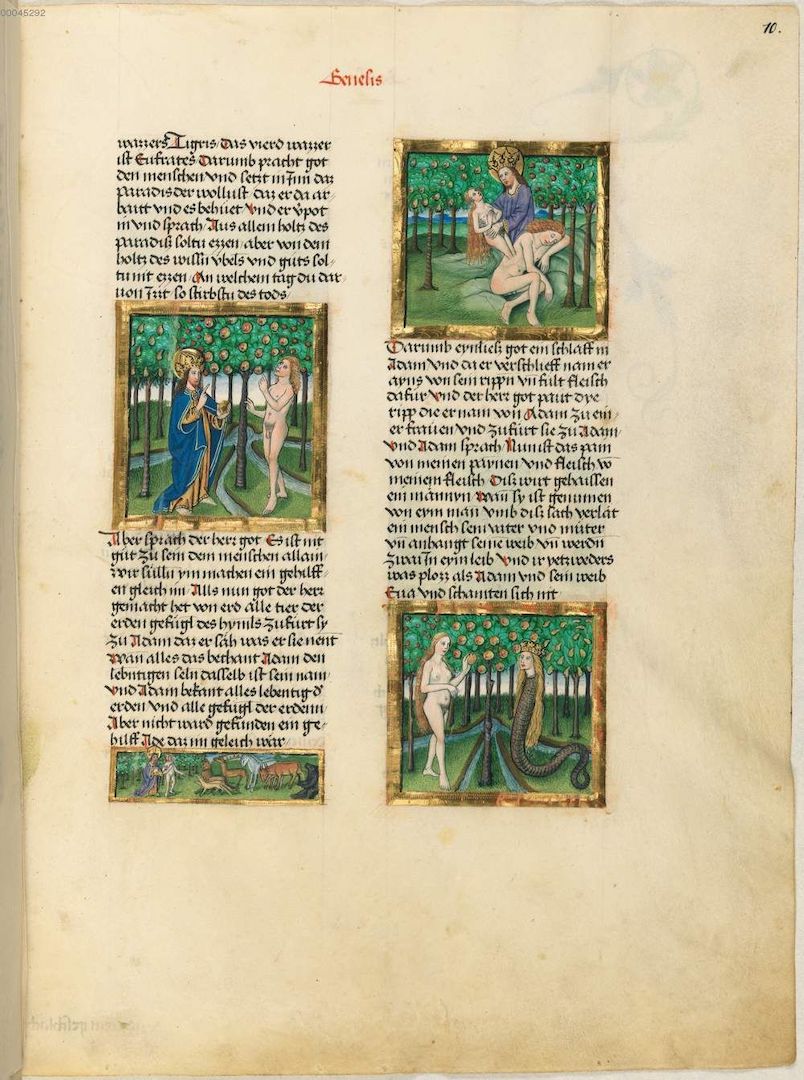 00045292
10.
Genesis
wazzers Tigris Das vierd wazzer
ist Eufrates Darumb pracht got
den menschen vnd setzt in Inn daz
paradis der wollust daz er da ar⸗
baitt vnd es behuet Vnd er vpot
in vnd sprach Aus allem holtz des
paradiß soltu ezzen aber von dem
holtz des wissn vbels vnd guts sol⸗
tu nit ezzen An welchem tag du dar⸗
von izzt so stirbstu des tods
Aber sprach der herr got Es ist nit
gut zu sein dem menschen allain
wir sulln ym machen ein gehilff⸗
en gleich im Alls nun got der herr
gemacht het von erd alle tier der
erden gefugl des hymils zufurt sy
zu Adam daz er säh was er sie nent
Wan alles das bethant Adam den
lebntigen seln dasselb ist sein nam
Vnd Adam bekant alles lebentig d'
erden vnd alle gefugl der erdenn
Aber nicht ward gefunden ein ge⸗
hilff Ade daz im geleich wär
Darumb eynließ got ein schlaff in
Adam vnd da er verschlieff nam er
ayns von sein rippn vn fult fleisch
dafur Vnd der herr got paut dye
ripp die er nam von Adam zu ein⸗
er frauen vnd zufurt sie zu Adam
Vnd Adam sprach Nun ist das pain
von meinen paynen vnd fleisch vo
meinem fleisch Diß wirt gehaissen
ein männyn Wan sy ist genumen
von eym man vmb diß sach verlät
ein mensch sein vater vnd muter
vn anhangt seine weib vn werdn
zwai In eym leib Vnd ir yetzweders
was ploz als Adam vnd sein weib
Eua vnd schamten sich nit